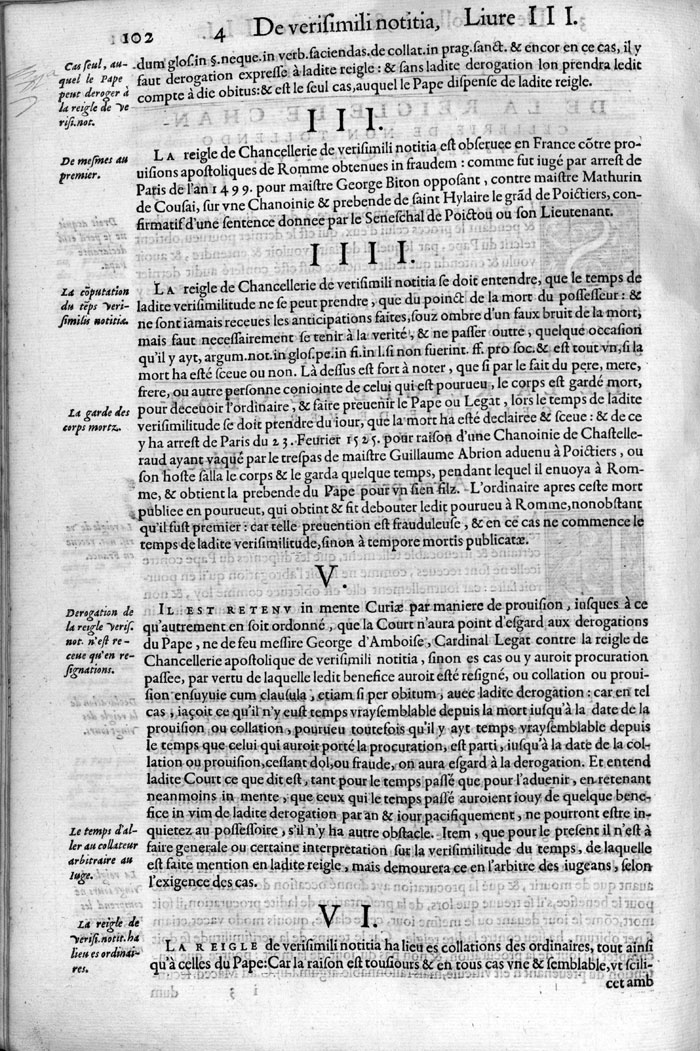 102 4 De verisimili notitia, Liure III.
Cas seul, au-
quel le Pape
peut deroger à
la reigle de ve
risi.not.
dum glos.in §.neque.in verb.faciendas.de collat.in prag.sanct. & encor en ce cas, il y
faut derogation expresse à ladite reigle : & sans ladite derogation lon prendra ledit
compte à die obitus: & est le seul cas, auquel le Pape dispense de ladite reigle.
III.
De mesmes au
premier.
LA reigle de Chancellerie de verisimili notitia est obseruee en France cōtre pro-
uisions apostoliques de Romme obtenues in fraudem : comme fut iugé par arrest de
Paris de l'an 1499. pour maistre George Biton opposant, contre maistre Mathurin
de Cousai, sur vne Chanoinie & prebende de saint Hylaire le grād de Poictiers, con-
firmatif d'une sentence donnee par le Seneschal de Poictou ou son Lieutenant.
IIII.
La cōputation
du tēps veri-
similis notitia.
LA reigle de Chancellerie de verisimili notitia se doit entendre, que le temps de
ladite verisimilitude ne se peut prendre, que du poinct de la mort du possesseur : &
ne sont iamais receues les anticipations faites, souz ombre d'un faux bruit de la mort,
mais faut necessairement se tenir à la verité, & ne passer outre, quelque occasion
qu'il y ayt, argum.not.in glos.pe.in fi.in l.si non fuerint. ff. pro soc. & est tout vn, si la
mort ha esté sceue ou non. Là dessus est fort à noter, que si par le fait du pere, mere,
frere, ou autre personne coniointe de celui qui est pourueu, le corps est gardé mort,
La garde des
corps mortz.
pour deceuoir l'ordinaire, & faire preuenir le Pape ou Legat, lors le temps de ladite
verisimilitude se doit prendre du iour, que la mort ha esté declairee & sceue : & de ce
y ha arrest de Paris du 23. Feurier 1525. pour raison d'une Chanoinie de Chastelle-
raud ayant vaqué par le trespas de maistre Guillaume Abrion aduenu à Poictiers, ou
son hoste salla le corps & le garda quelque temps, pendant lequel il enuoya à Rom-
me, & obtient la prebende du Pape pour vn sien filz. L'ordinaire apres ceste mort
publiee en pourueut, qui obtint & fit debouter ledit pourueu à Romme, nonobstant
qu'il fust premier : car telle preuention est frauduleuse, & en ce cas ne commence le
temps de ladite verisimilitude, sinon à tempore mortis publicatæ.
V.
Derogation de
la reigle veris.
not. n'est re-
ceue qu'en re-
signations.
IL EST RETENV in mente Curiæ par maniere de prouision, iusques à ce
qu'autrement en soit ordonné, que la Court n'aura point d'esgard aux derogations
du Pape, ne de feu messire George d'Amboise, Cardinal Legat contre la reigle de
Chancellerie apostolique de verisimili notitia, sinon es cas ou y auroit procuration
passee, par vertu de laquelle ledit benefice auroit esté resigné, ou collation ou proui-
sion ensuyuie cum clausula, etiam si per obitum, auec ladite derogation : car en tel
cas, iaçoit ce qu'il n'y eust temps vraysemblable depuis la mort iusqu'à la date de la
prouision ou collation, pourueu toutefois qu'il y ayt temps vraysemblable depuis
le temps que celui qui auroit porté la procuration, est parti, iusqu'à la date de la col-
lation ou prouision, cessant dol, ou fraude, on aura esgard à la derogation. Et entend
ladite Court ce que dit est, tant pour le temps passé que pour l'aduenir, en retenant
neanmoins in mente, que ceux qui le temps passé auroient iouy de quelque bene-
fice in vim de ladite derogation par an & iour pacifiquement, ne pourront estre in-
Le temps d'al-
ler au collateur
arbitraire au
Iuge.
quietez au possessoire, s'il n'y ha autre obstacle. Item, que pour le present il n'est à
faire generale ou certaine interpretation sur la verisimilitude du temps, de laquelle
est faite mention en ladite reigle, mais demourera ce en l'arbitre des iugeans, selon
l'exigence des cas.
VI.
La reigle de
verisi.notit.ha
lieu es ordinai-
res.
LA REIGLE de verisimili notitia ha lieu es collations des ordinaires, tout ainsi
qu'à celles du Pape: Car la raison est tousiours & en tous cas vne & semblable, vt scili-
cet amb